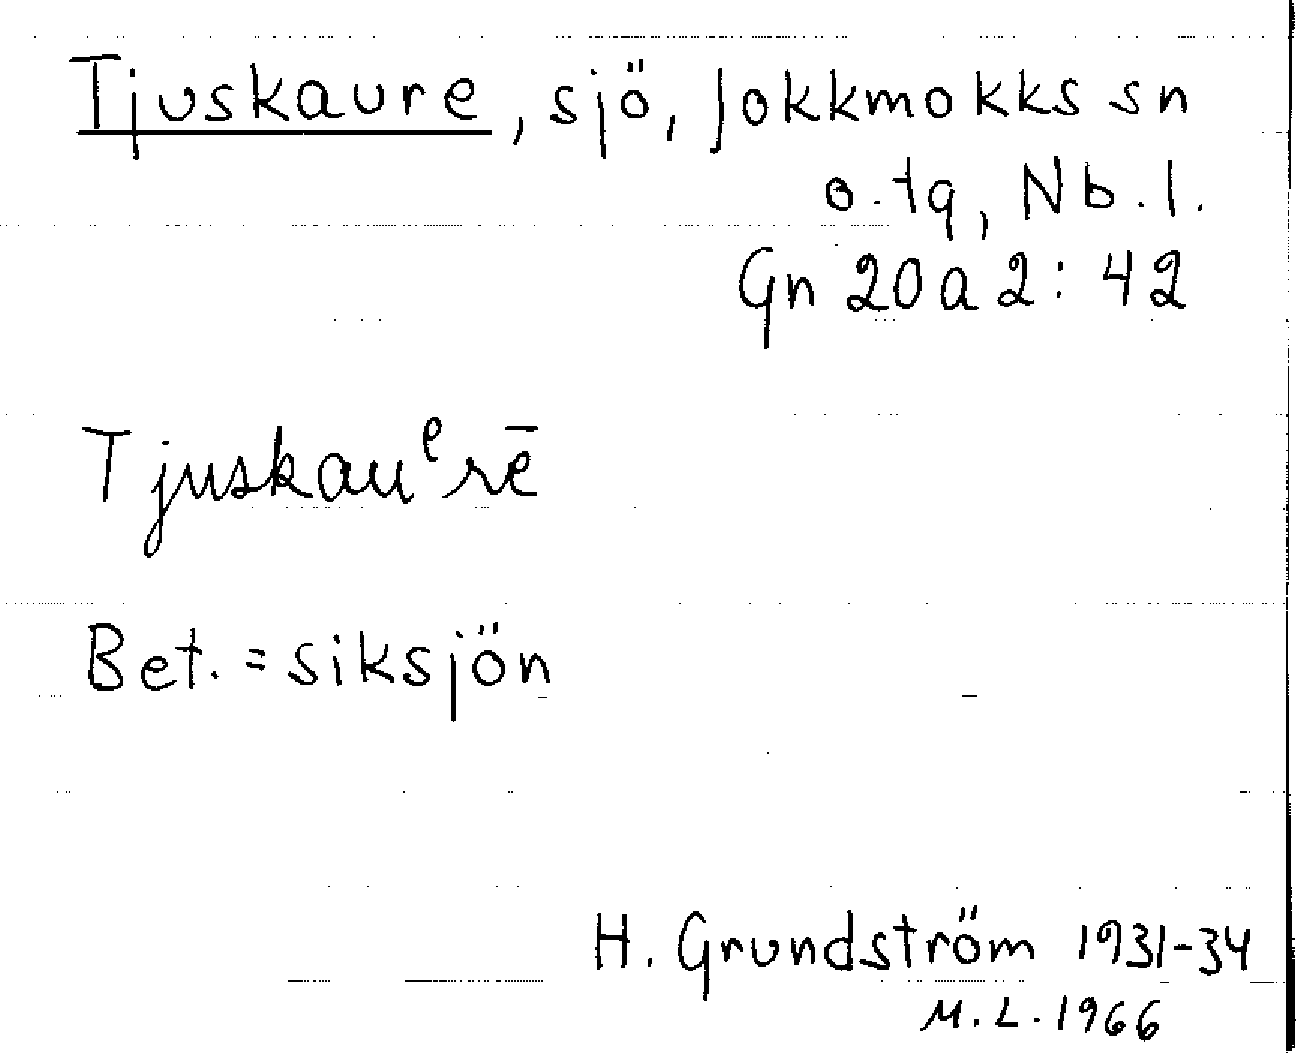 Tjuskaure, sjö, Jokkmokks sn
o. tg, Nb. l.
Gn 20 a 2: 42
Tjuskauᵉrē
Bet. = siksjön
H. Grundström 1931-34
M. L. 1966